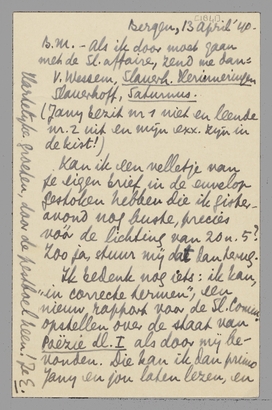 Bergen, 13 April '40.
B.M. - Als ik door moet gaan
met de Sl. affaire, zend me dan:
V. Wessem, Slauerh. Herinneringen
Slauerhoff, Saturnus.
(Jany bezit nr 1 niet en leende
nr. 2 uit en mijn exx. zijn in
de kist!)
Kan ik een velletje van
je eigen brief in de envelop
gestoken hebben die ik gister-
avond nog bustte, precies
vóór de lichting van 20 u. 5?
Zoo ja, stuur mij dat kanterug.
Ik bedenk nog iets: ik kan,
"in correcte termen", een
nieuw rapport voor de Sl. Comm.
opstellen over de staat van
Poëzie dl. I als door mij be-
vonden. Die kan ik dan primo
Jany en jou laten lezen, en
Hartelijke groeten, door de heele boel heen! Je E.